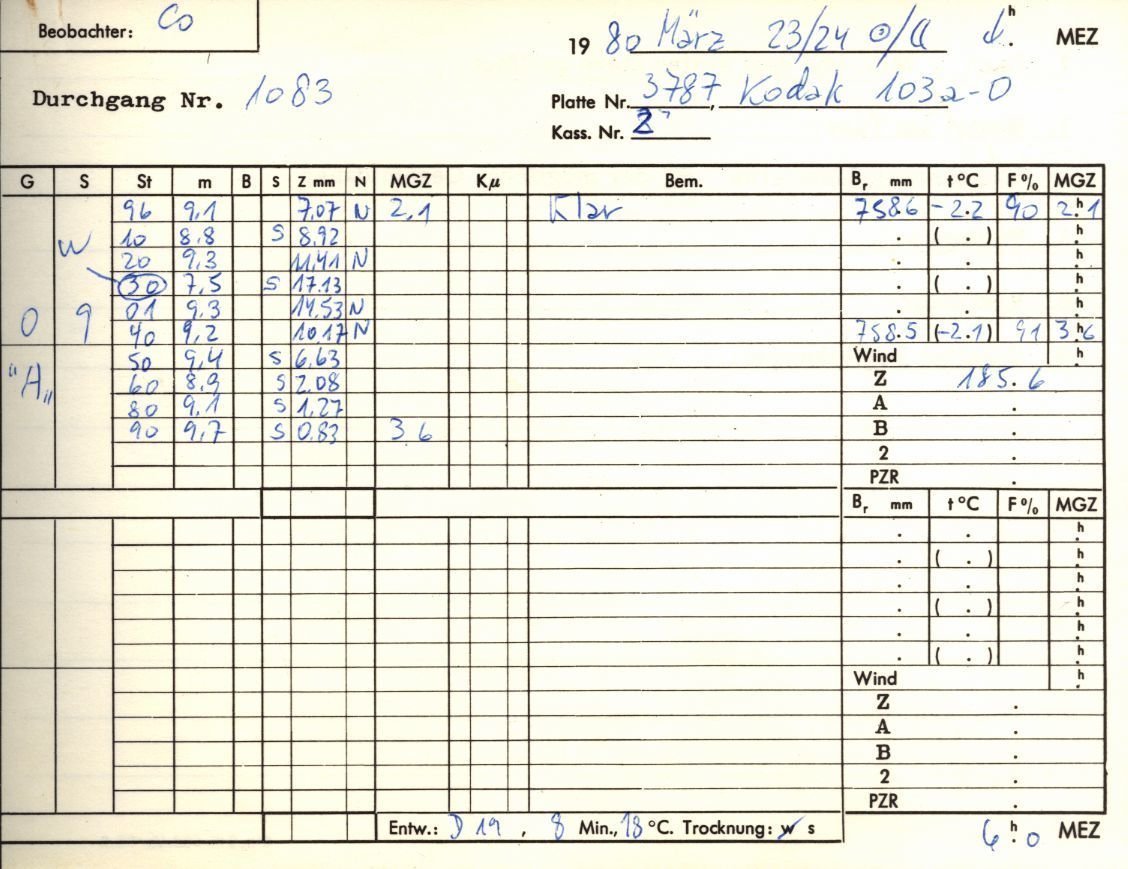 Beobachter: Co
19 80 März 23/24 ⊙/☾ h. MEZ
Durchgang Nr. 1083
Platte Nr. 3787, Kodak 103a-O
Kass. Nr. 2
G S St m B S Z mm N MGZ Kμ Bem. Br mm t °C F % MGZ
96 9,1 7,07 N 2,1 Klar 758.6 -2.2 90 2.h1
W 10 8.8 S 8.92 . ( . ) h.
20 9,3 11,41 N . . h.
30 7,5 S 17.13 . ( . ) h.
01 9,3 14,53 N . . h.
0 9 40 9,2 10,17 N 758.5 (-2.1) 91 3.h6
50 9,4 S 6,63 Wind h.
"A" 60 8,9 S 2.08 Z 185.6
80 9,1 S 1,27 A .
90 9,7 S 0.83 3.6 B .
2 .
PZR .
Br mm t °C F % MGZ
. . h.
. ( . ) h.
. . h.
. ( . ) h.
. . h.
. ( . ) h.
Wind h.
Z .
A .
B .
2 .
PZR .
Entw.: D 19, 8 Min., 18 °C. Trocknung: w s
6.h0 MEZ